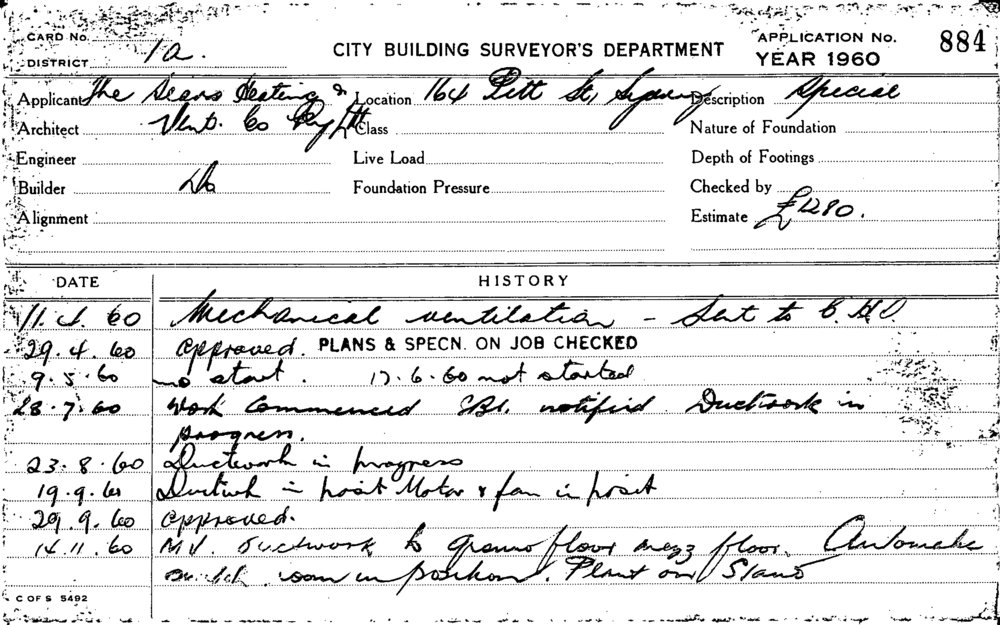 CARD No.
DISTRICT 1a.
CITY BUILDING SURVEYOR'S DEPARTMENT
APPLICATION No. 884
YEAR 1960
Applicant The Sears Heating & Location 164 Pitt St, Sydney Description Special
Architect Vent. Co Pty Ltd Class Nature of Foundation
Engineer Live Load Depth of Footings
Builder Do Foundation Pressure Checked by
Alignment Estimate £1280.
DATE HISTORY
11.4.60 Mechanical ventilation - Sent to C.H.O.
29.4.60 approved. PLANS & SPECN. ON JOB CHECKED
9.5.60 no start. 17.6.60 not started
28.7.60 Work Commenced notified Ductwork in
progress.
23.8.60 Ductwork in progress
19.9.60 in posit Motor & fan in posit
29.9.60 approved.
14.11.60 M.V. ductwork to ground floor mezz floor. Automatic
room in position. Plant on Stand
C OF S 5492